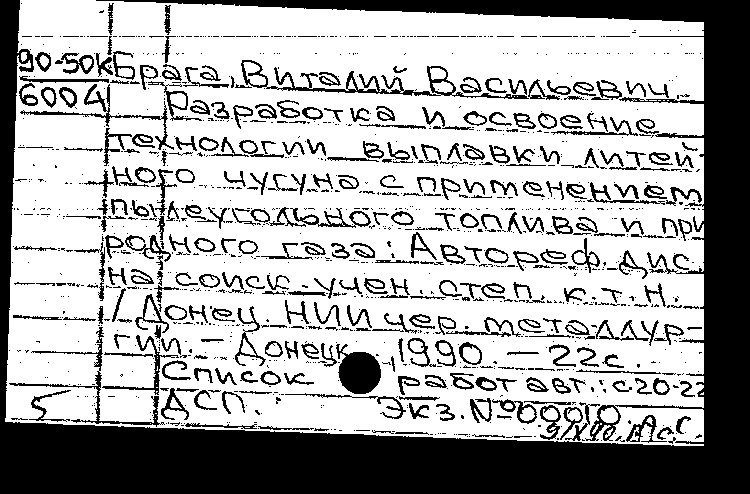 90-50к Брага, Виталий Васильевич.
6004 Разработка и освоение
технологии выплавки литей-
ного чугуна с применением
пылеугольного топлива и при
родного газа: Автореф. дис.
на соиск. учен. степ. к.т.н.
/ Донец. НИИ чер. металлур-
гии. - Донецк, 1990. - 22с.
Список работ авт.: с.20-22
5 ДСП. Экз. №00010.